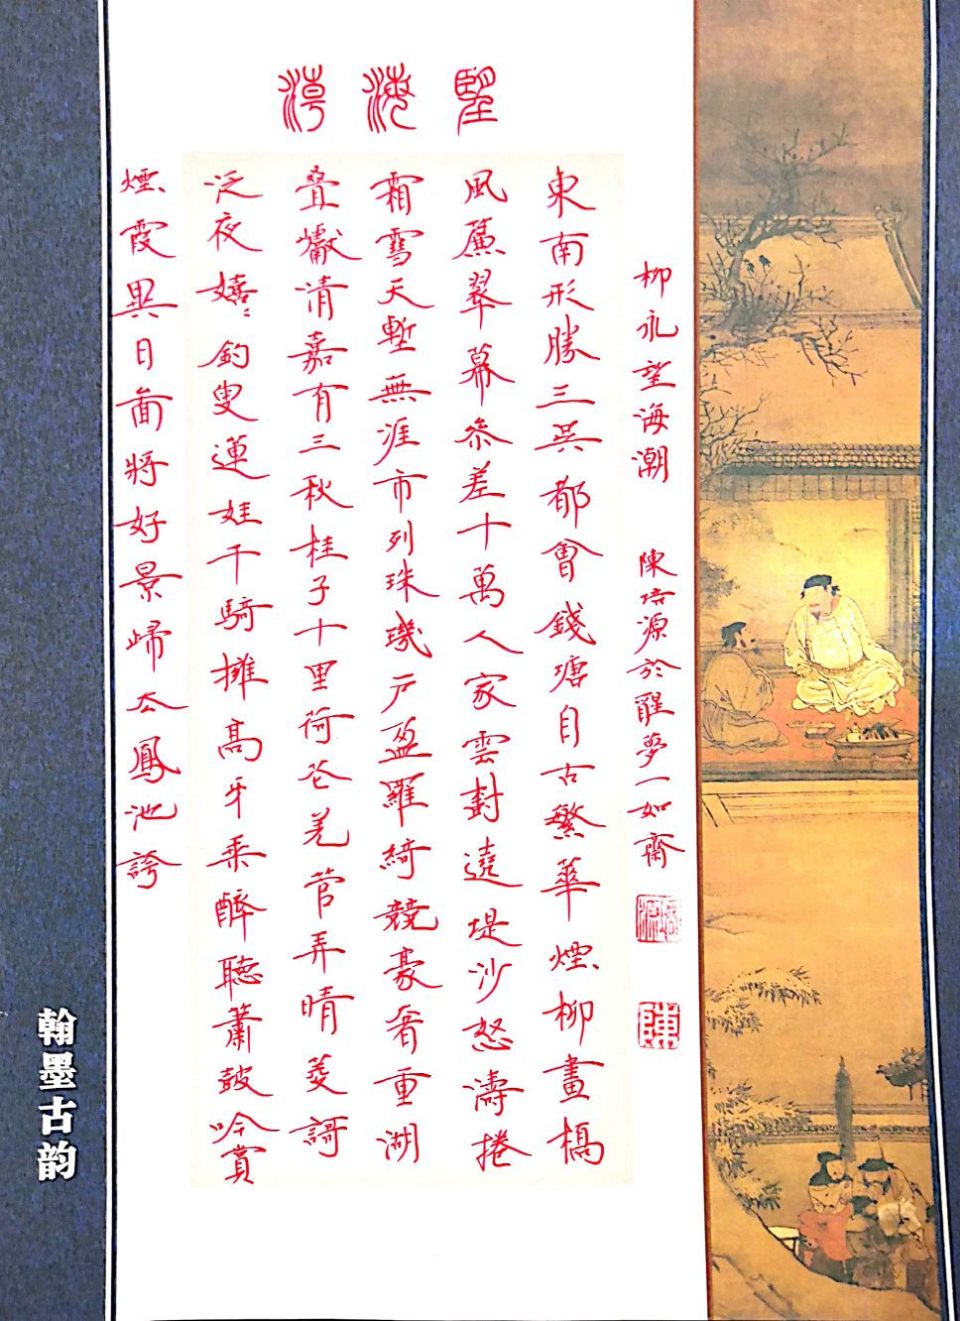 望海潮
柳永望海潮 陳培源於醒夢一如齋
東南形勝三吳都會錢塘自古繁華煙柳畫橋
風簾翠幕參差十萬人家雲尌遶堤沙怒濤捲
霜雪天塹無涯市列珠璣戶盈羅綺競豪奢重湖
疊巘清嘉有三秋桂子十里荷花羌管弄晴菱謌
泛夜嬉〻釣叟蓮娃千騎擁高牙乘醉聽簫鼓吟賞
煙霞異日圖將好景歸去鳳池誇
陳
翰墨古韵